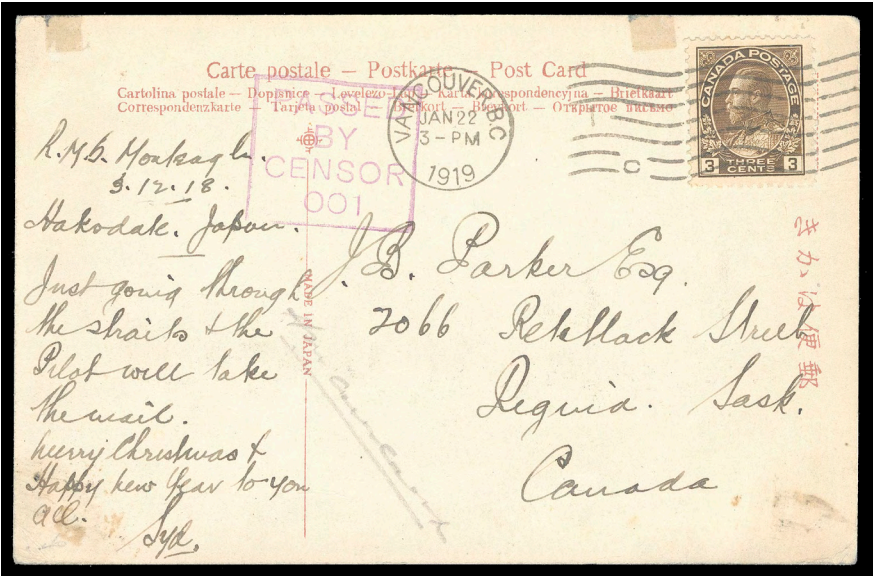 Carte postale — Postkarte — Post Card
Cartolina postale — Dopisnice — Levelező-Lap — Karta korespondencyjna — Briefkaart
Correspondenzkarte — Tarjeta postal — Brefkort — Brevkort — Открытое письмо
PASSED
BY
CENSOR
001
VANCOUVER, B.C
JAN 22
3 - PM
1919
C
CANADA POSTAGE
3 THREE CENTS 3
R.M.S. Monteagle.
3.12.18.
Hakodate. Japan.
Just going through
the straits & the
Pilot will take
the mail.
Merry Christmas &
Happy New Year to you
all.
Syd.
MADE IN JAPAN
J.B. Parker Esq.
2066 Retallack Street
Regina. Sask.
Canada
きかは便郵